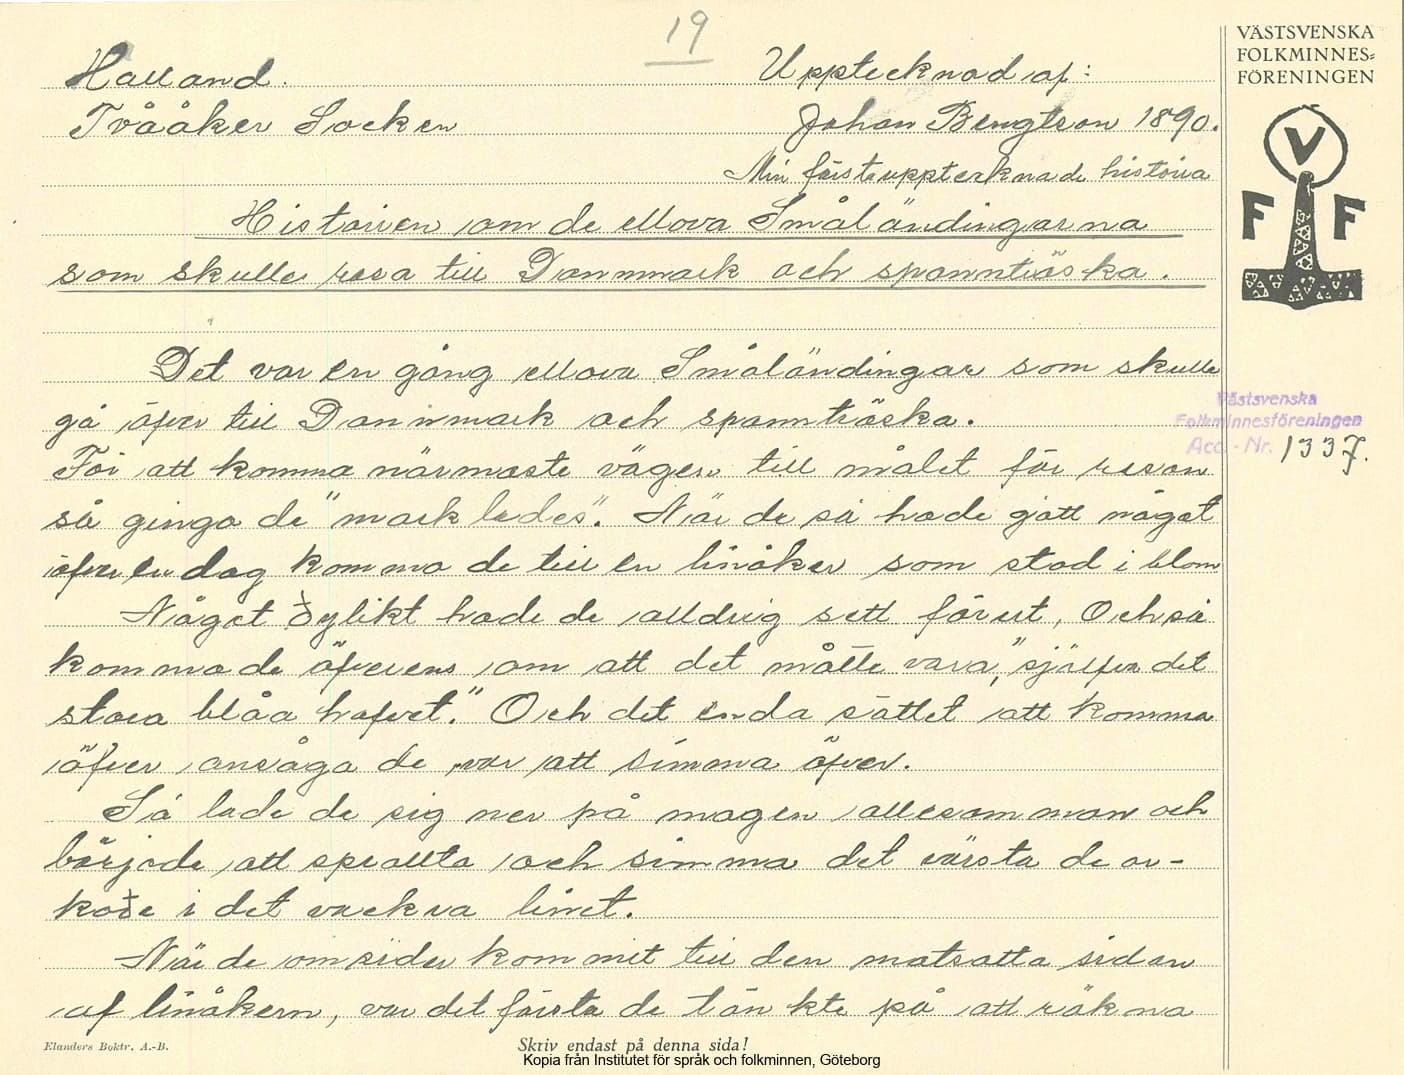 19
VÄSTSVENSKA
FOLKMINNES=
FÖRENINGEN
V
F F
Halland.
Upptecknad af:
Tvååker Socken
Johan Bengtson 1890.
Min första upptecknade historia
Historien om de ellova Småländingarna
som skulle resa till Dannmark och spannträska.
Det var en gång ellova Småländingar som skulle
gå öfver till Dannmark och spannträska.
Västsvenska
Folkminnesföreningen
Acc.-Nr. 1337.
För att komma närmaste vägen till målet för resan
så gingo de "mark ledes". När de så hade gått något
öfver en dag kommo de till en linåker som stod i blom
Något dylikt hade de alldrig sett förut, Och så
kommo de öfverens om att det måtte vara, "sjelfva det
stora blåa hafvet." Och det enda sättet att komma
öfver ansågo de var att simma öfver.
Så lade de sig ner på magen allesamman och
började att sprallta och simma det värsta de or-
kade i det vackra linet.
När de omsider kommit till den motsatta sidan
af linåkern, var det första de tänkte på att räkna
Elanders Boktr. A.-B.
Skriv endast på denna sida!
Kopia från Institutet för språk och folkminnen, Göteborg